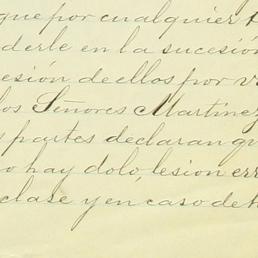 que por cualquier t
derle en la sucesión
esión de ellos por v
los Señores Martinez
s partes declaran qu
o hay dolo, lesion err
clase y en caso de h